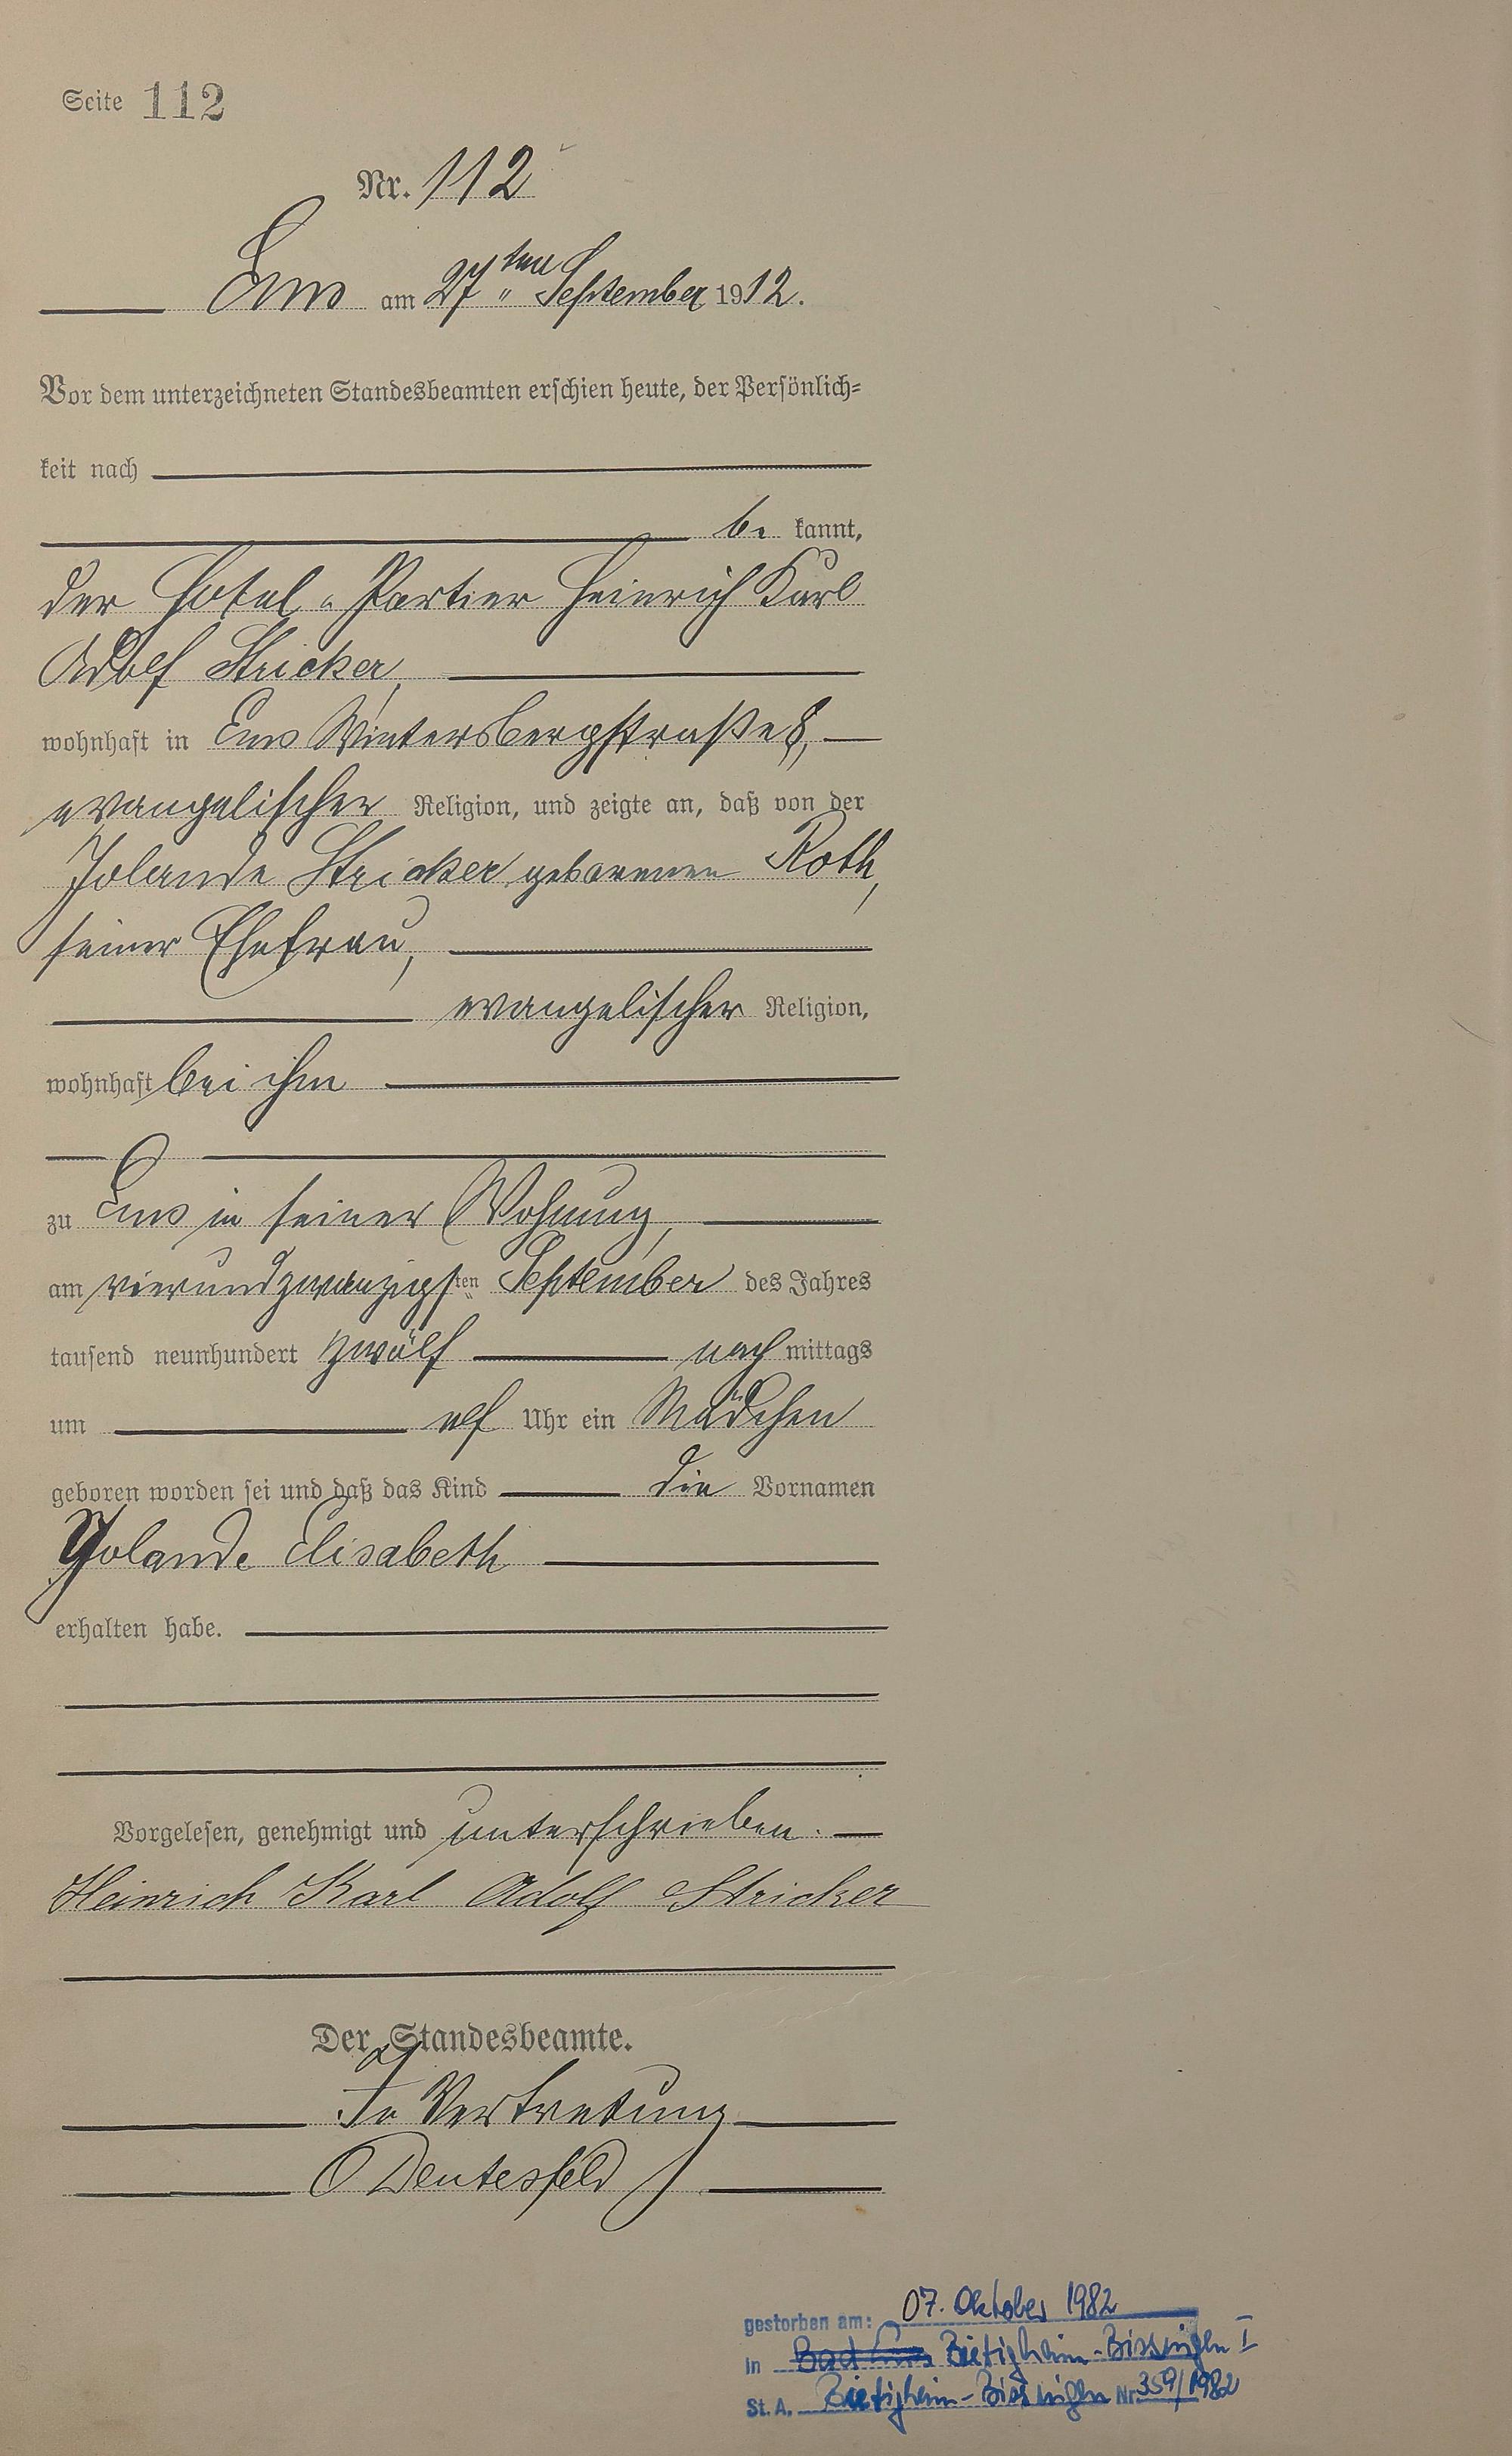 Seite 112
Nr. 112
Ems am 27ten September 1912.
Vor dem unterzeichneten Standesbeamten erschien heute, der Persönlich=
keit nach
be kannt,
der Hotel-Portier Heinrich Karl
Adolf Stricker,
wohnhaft in Ems Wintersbergstraße 8,
evangelischer Religion, und zeigte an, daß von der
Jolande Stricker geborenen Roth,
seiner Ehefrau,
evangelischer Religion,
wohnhaft bei ihm
zu Ems in seiner Wohnung,
am vierundzwanzigsten September des Jahres
tausend neunhundert zwölf nach mittags
um elf Uhr ein Mädchen
geboren worden sei und daß das Kind die Vornamen
Yolande Elisabeth
erhalten habe.
Vorgelesen, genehmigt und unterschrieben.
Heinrich Karl Adolf Stricker
Der Standesbeamte.
In Vertretung
Deutesfeld
gestorben am: 07. Oktober 1982
in Bad Ems Bietigheim-Bissingen I
St. A. Bietigheim-Bissingen Nr. 359/1982